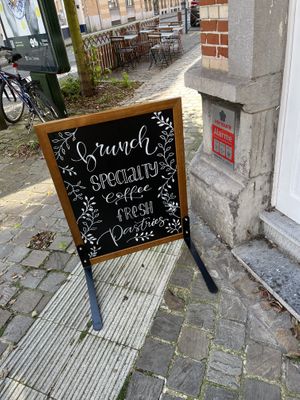 brunch
SPECIALTY
coffee
FRESH
Pastries